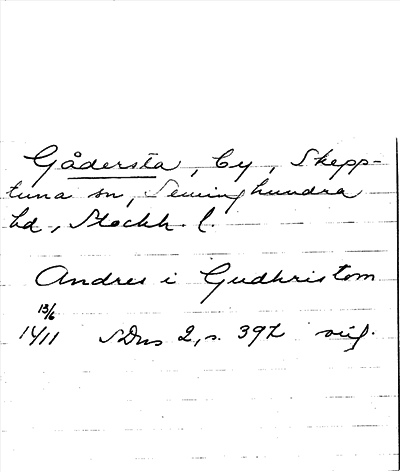 Gådersta, by, Skepp-
tuna sn, Seminghundra
hd, Stockh. l.
Andres i Gudhristom
13/6
1411 SDns 2, s. 392 orig.